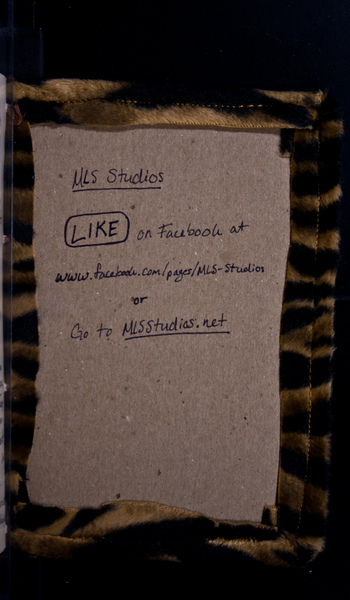 MLS Studios
LIKE on Facebook at
www.facebook.com/pages/MLS-Studios
or
Go to MLSStudios.net